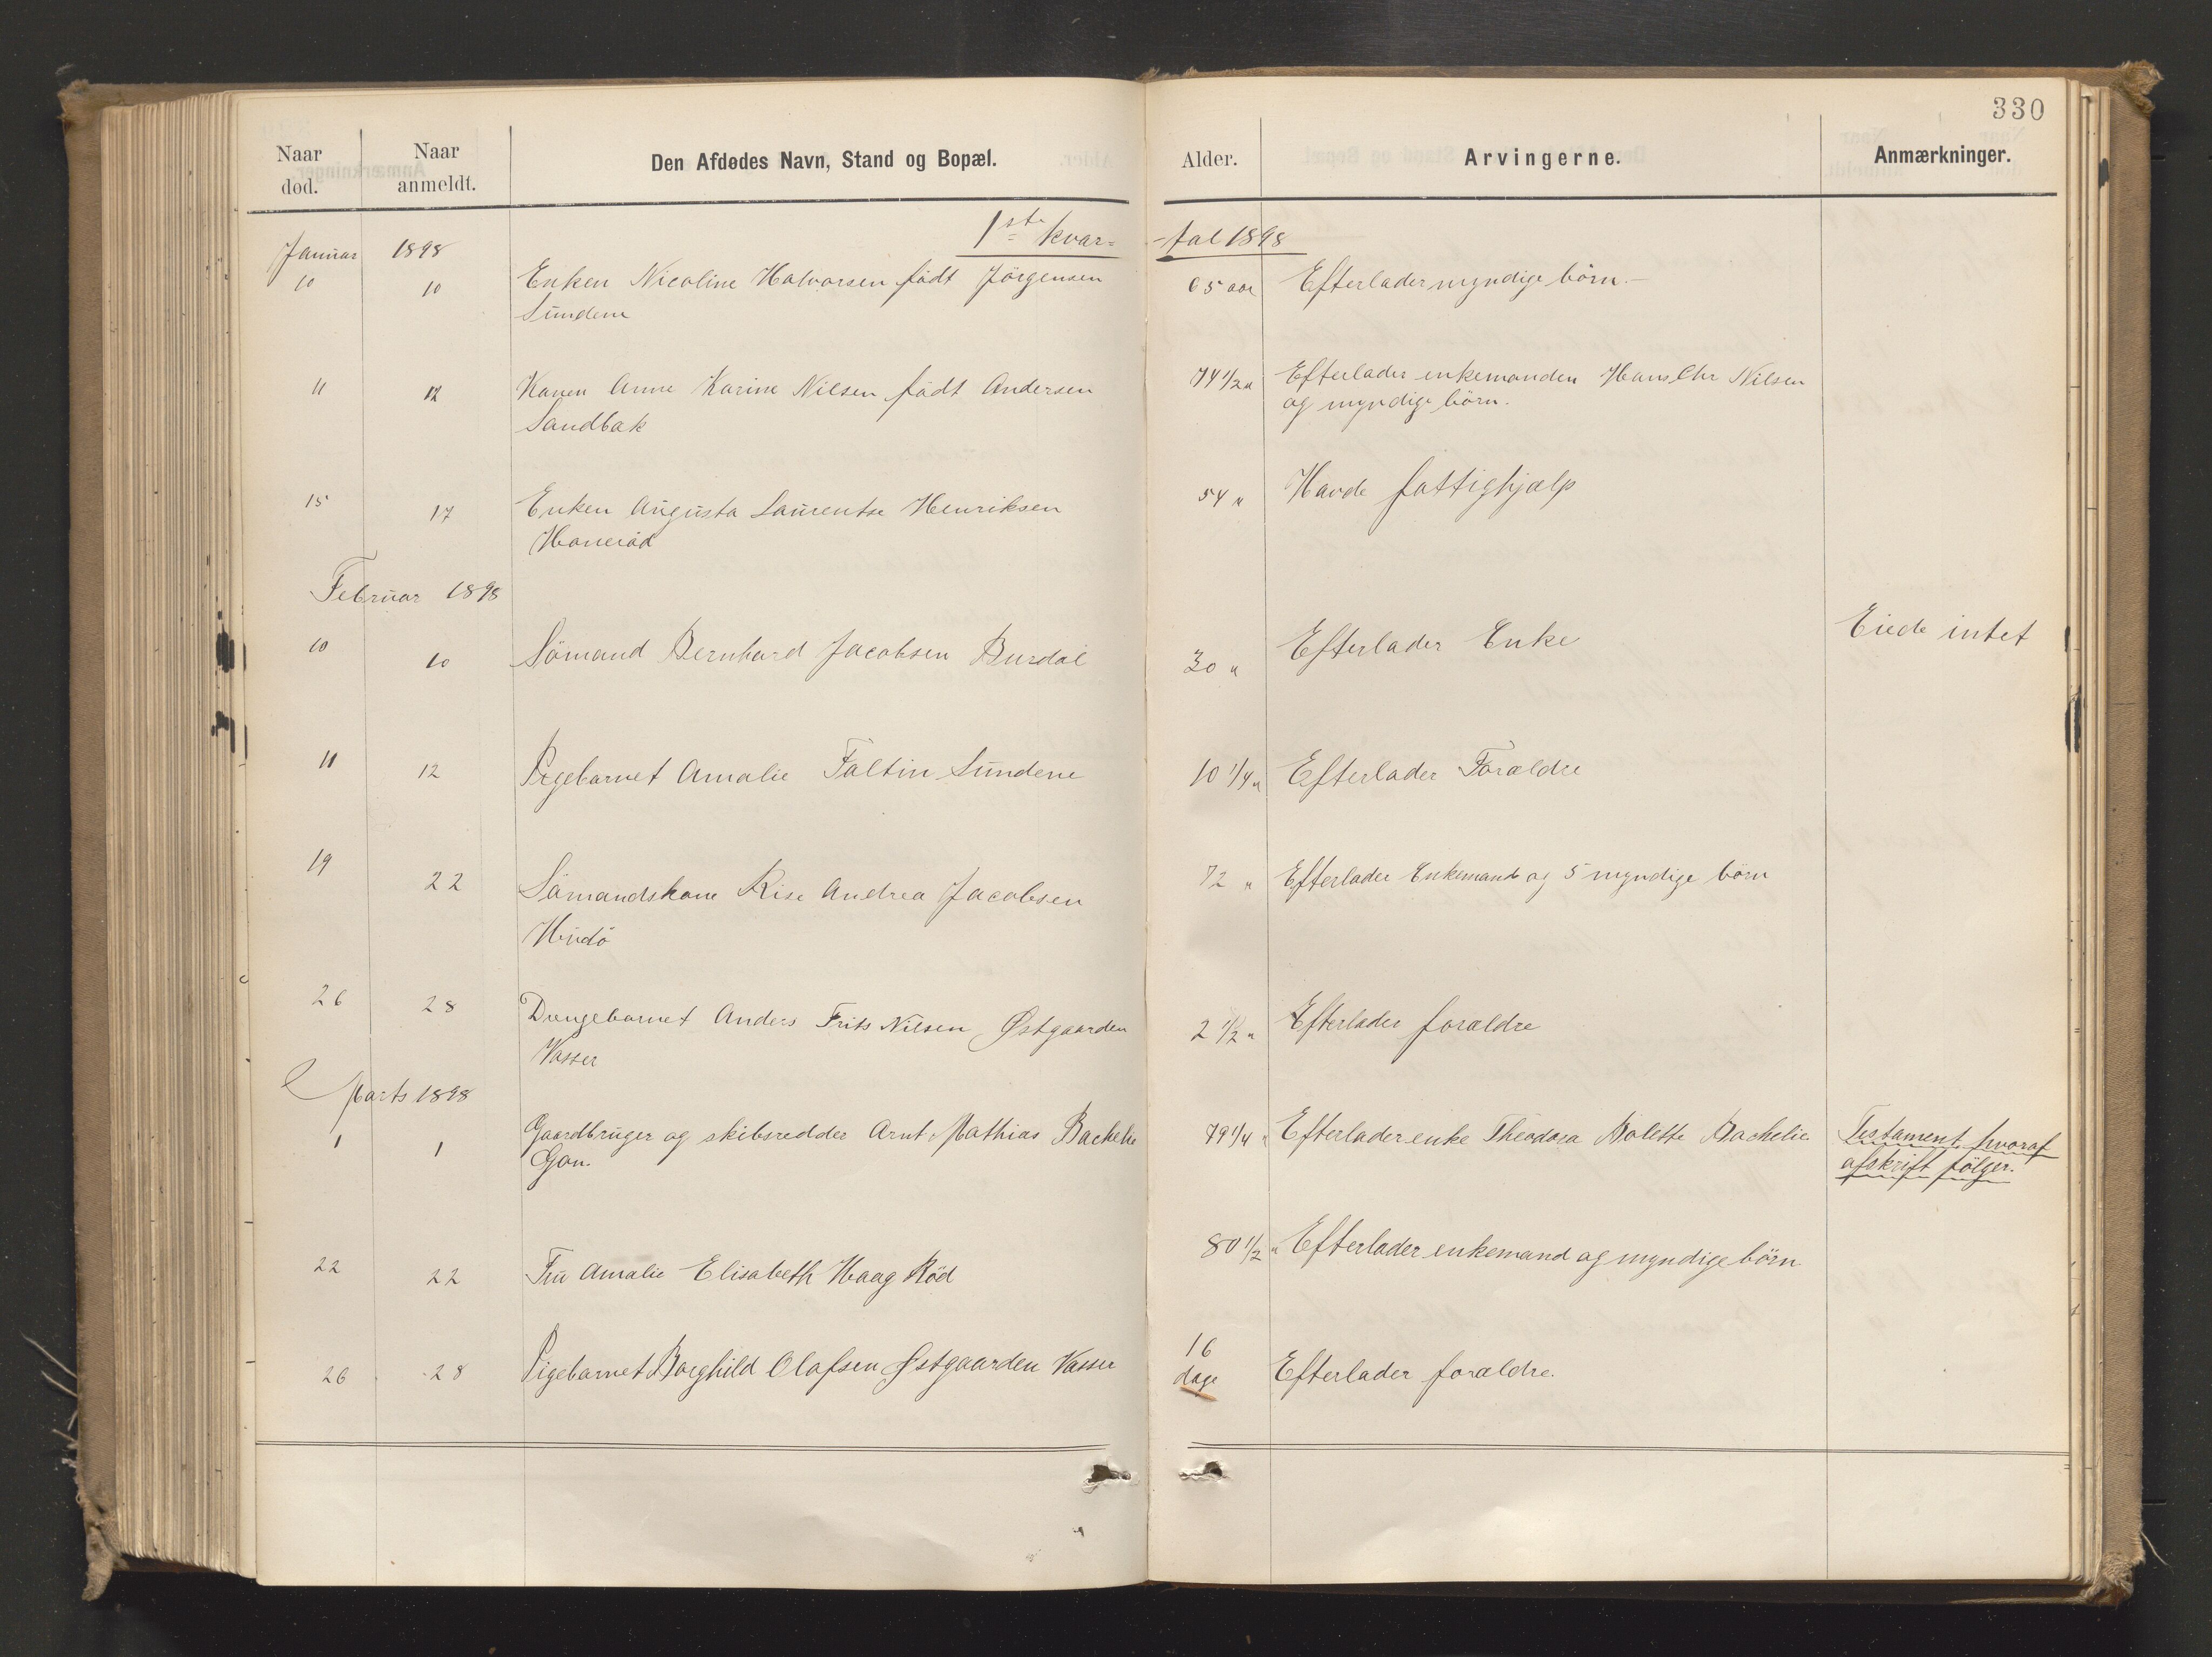 330
Naar død.
Naar anmeldt.
Den Afdødes Navn, Stand og Bopæl.
Alder.
Arvingerne.
Anmærkninger.
1ste kvar=
-tal 1898
Januar 1898
10 10 Enken Nicoline Halvorsen født Jörgensen 65 aar Efterlader myndige börn.-
Sundene
11 12 Konen Anne Karine Nilsen født Andersen 74 1/2 " Efterlader enkemanden Hans Chr Nilsen
Sandbak og myndige börn.
15 17 Enken Augusta Laurentse Henriksen 54 " Havde fattighjælp
Haneröd
Februar 1898
10 10 Sömand Bernhard Jacobsen Burdal 30 " Efterlader Enke Eiede intet
11 12 Pigebarnet Amalie Faltin Sundene 10 1/4 " Efterlader Forældre
19 22 Sömandskone Rise Andrea Jacobsen 72 " Efterlader Enkemand og 5 myndige börn
Hvidö
26 28 Drengebarnet Anders Frits Nilsen Østgaarden 2 1/2 " Efterlader forældre
Vasser
Marts 1898
1 1 Gaardbruger og skibsredder Arnt Mathias Bachelie 79 1/4 " Efterlader enke Theodora Bolette Bachelie Testament hvoraf
Gon. afskrift fölger.
22 22 Fru Amalie Elisabeth Haag Röd 80 1/2 " Efterlader enkemand og myndige börn
26 28 Pigebarnet Borghild Olafsen Østgaarden Vasser 16 dage Efterlader forældre.